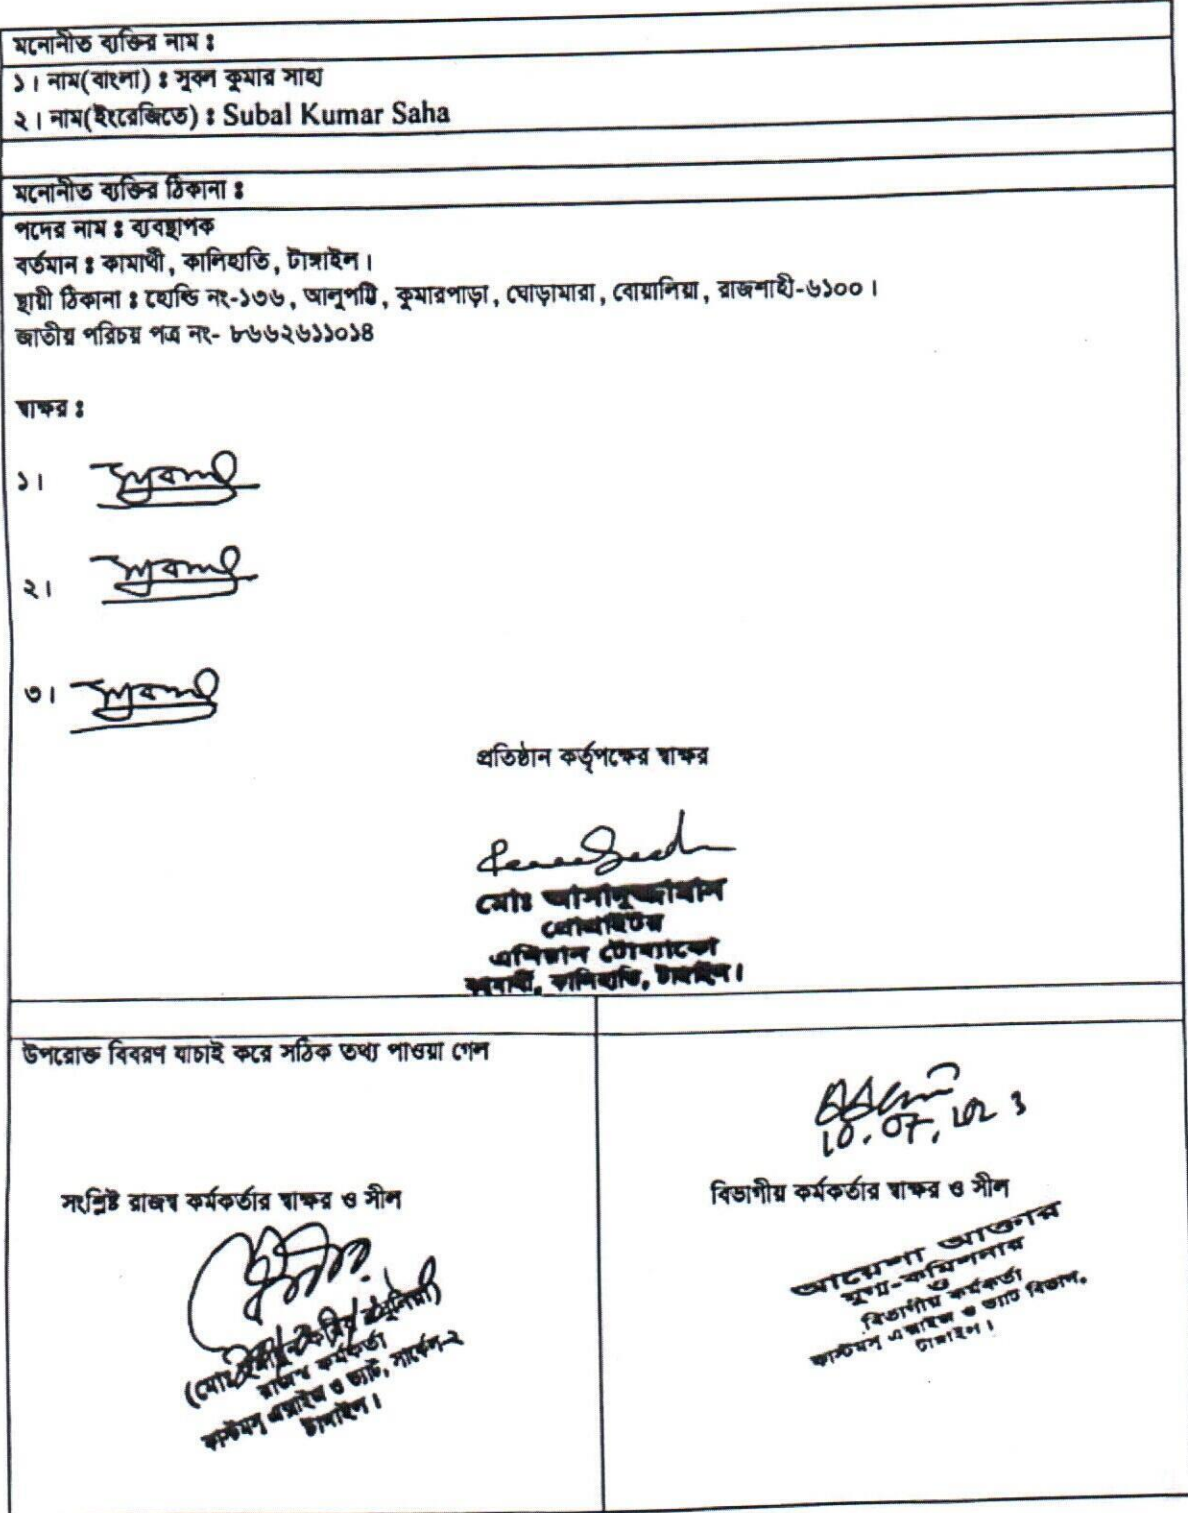 মনোনীত ব্যক্তির নাম ঃ
১। নাম(বাংলা) ঃ সুবল কুমার সাহা
২। নাম(ইংরেজিতে) ঃ Subal Kumar Saha
মনোনীত ব্যক্তির ঠিকানা ঃ
পদের নাম ঃ ব্যবস্থাপক
বর্তমান ঃ কামার্থী, কালিহাতি, টাঙ্গাইল।
স্থায়ী ঠিকানা ঃ হোল্ডি নং-১৩৬, আলুপট্টি, কুমারপাড়া, ঘোড়ামারা, বোয়ালিয়া, রাজশাহী-৬১০০।
জাতীয় পরিচয় পত্র নং- ৮৬৬২৬১১০১৪
স্বাক্ষর ঃ
১।
২।
৩।
প্রতিষ্ঠান কর্তৃপক্ষের স্বাক্ষর
মোঃ আসাদুজ্জামান
প্রোপ্রাইটর
এশিয়ান টোব্যাকো
কামার্থী, কালিহাতি, টাঙ্গাইল।
উপরোক্ত বিবরণ যাচাই করে সঠিক তথ্য পাওয়া গেল
সংশ্লিষ্ট রাজস্ব কর্মকর্তার স্বাক্ষর ও সীল
(মোঃ
রাজস্ব কর্মকর্তা
কাস্টমস্ এক্সাইজ ও ভ্যাট, সার্কেল-২
টাঙ্গাইল।
10.07.
বিভাগীয় কর্মকর্তার স্বাক্ষর ও সীল
আয়েশা আক্তার
যুগ্ম-কমিশনার
ও
বিভাগীয় কর্মকর্তা
কাস্টমস্ এক্সাইজ ও ভ্যাট বিভাগ,
টাঙ্গাইল।